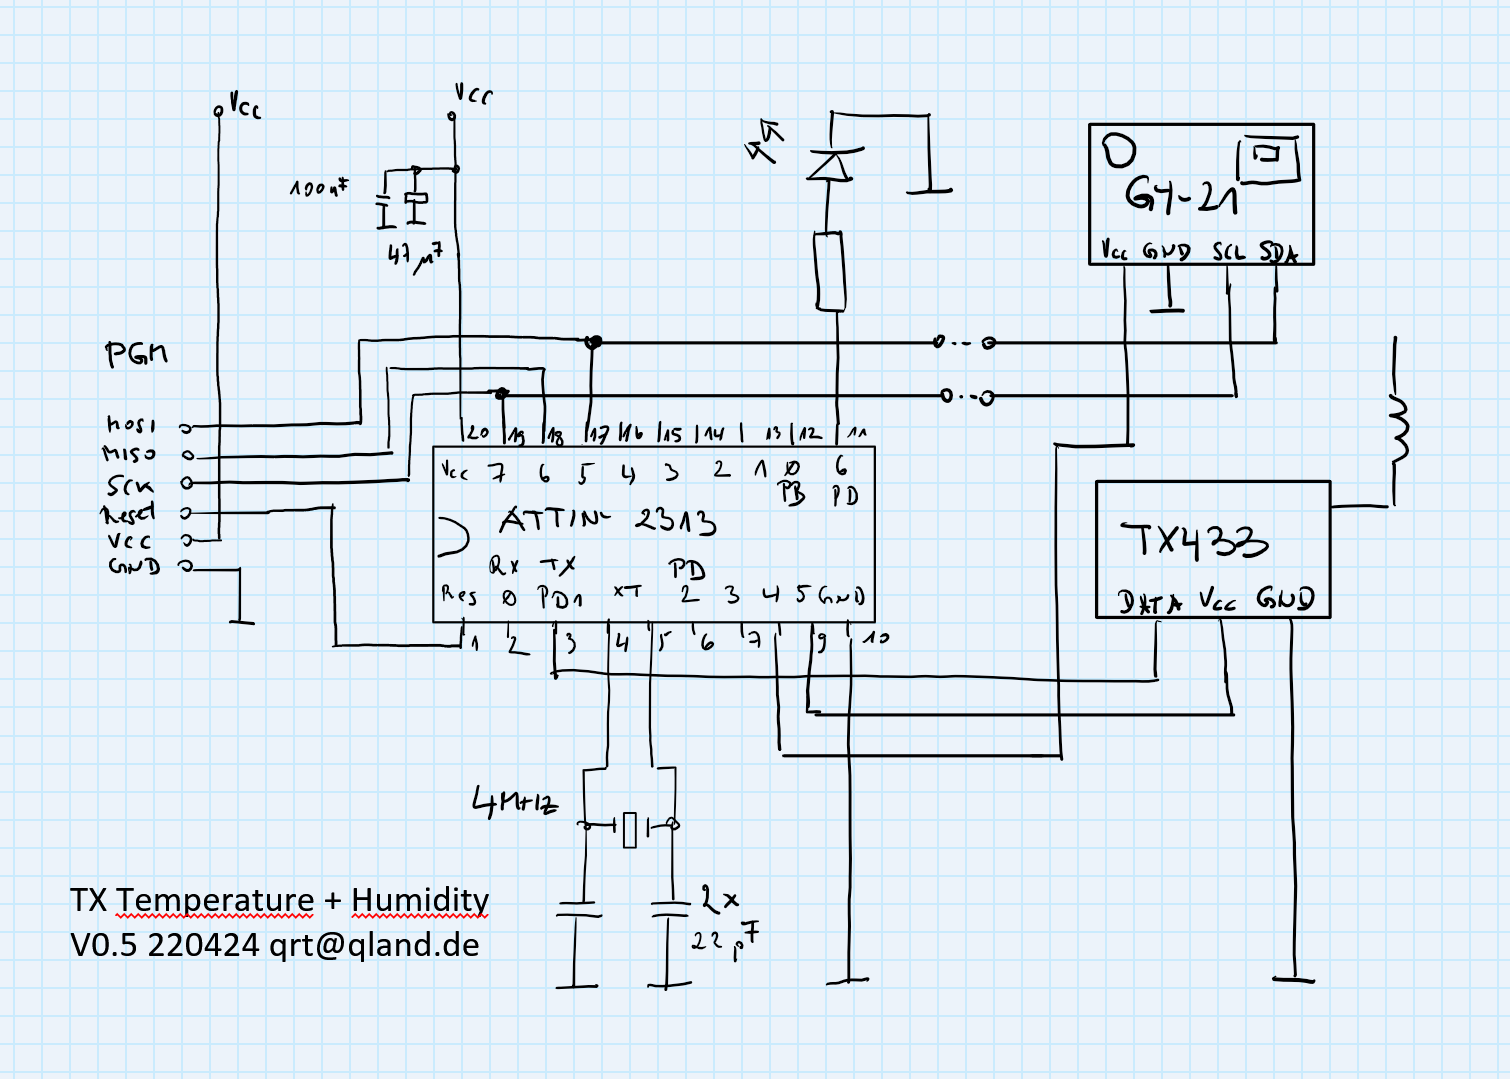 Vcc
Vcc
100nF
47µF
GY-21
Vcc GND SCL SDA
PGM
MOSI
MISO
SCK
Reset
Vcc
GND
20 19 18 17 16 15 14 13 12 11
Vcc 7 6 5 4 3 2 1 0 6
PB PD
ATTINY 2313
RX TX PD
Res 0 PD1 XT 2 3 4 5 GND
1 2 3 4 5 6 7 9 10
TX433
DATA Vcc GND
4MHz
2x
22pF
TX Temperature + Humidity
V0.5 220424 qrt@qland.de